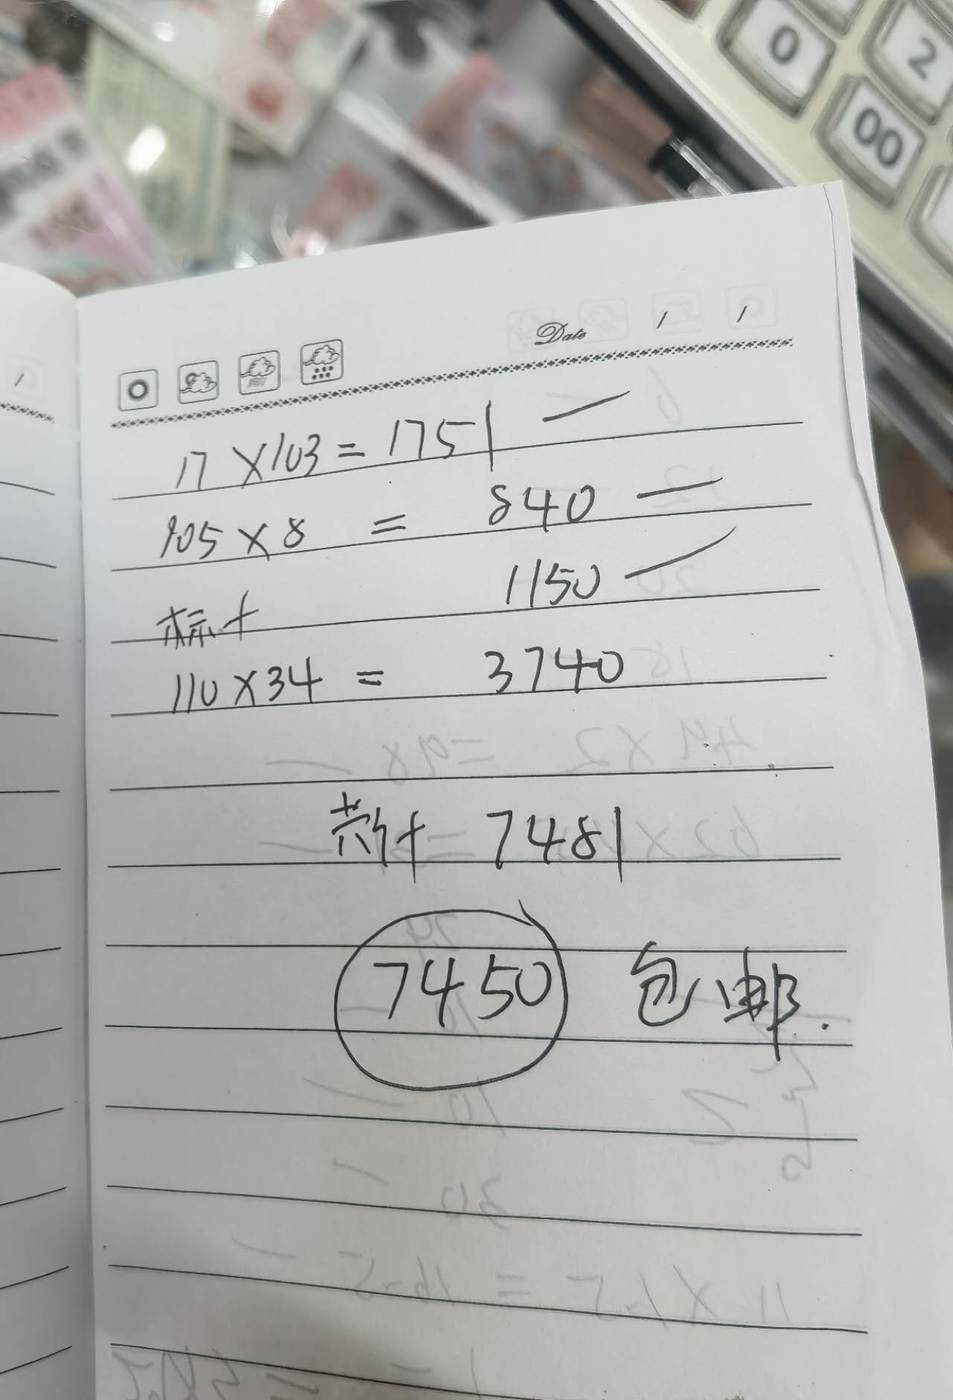 0
2
00
Date / /
17×103=1751 —
105×8 = 840 —
标十 1150 —
110×34 = 3740
共计 7481
7450 包邮.